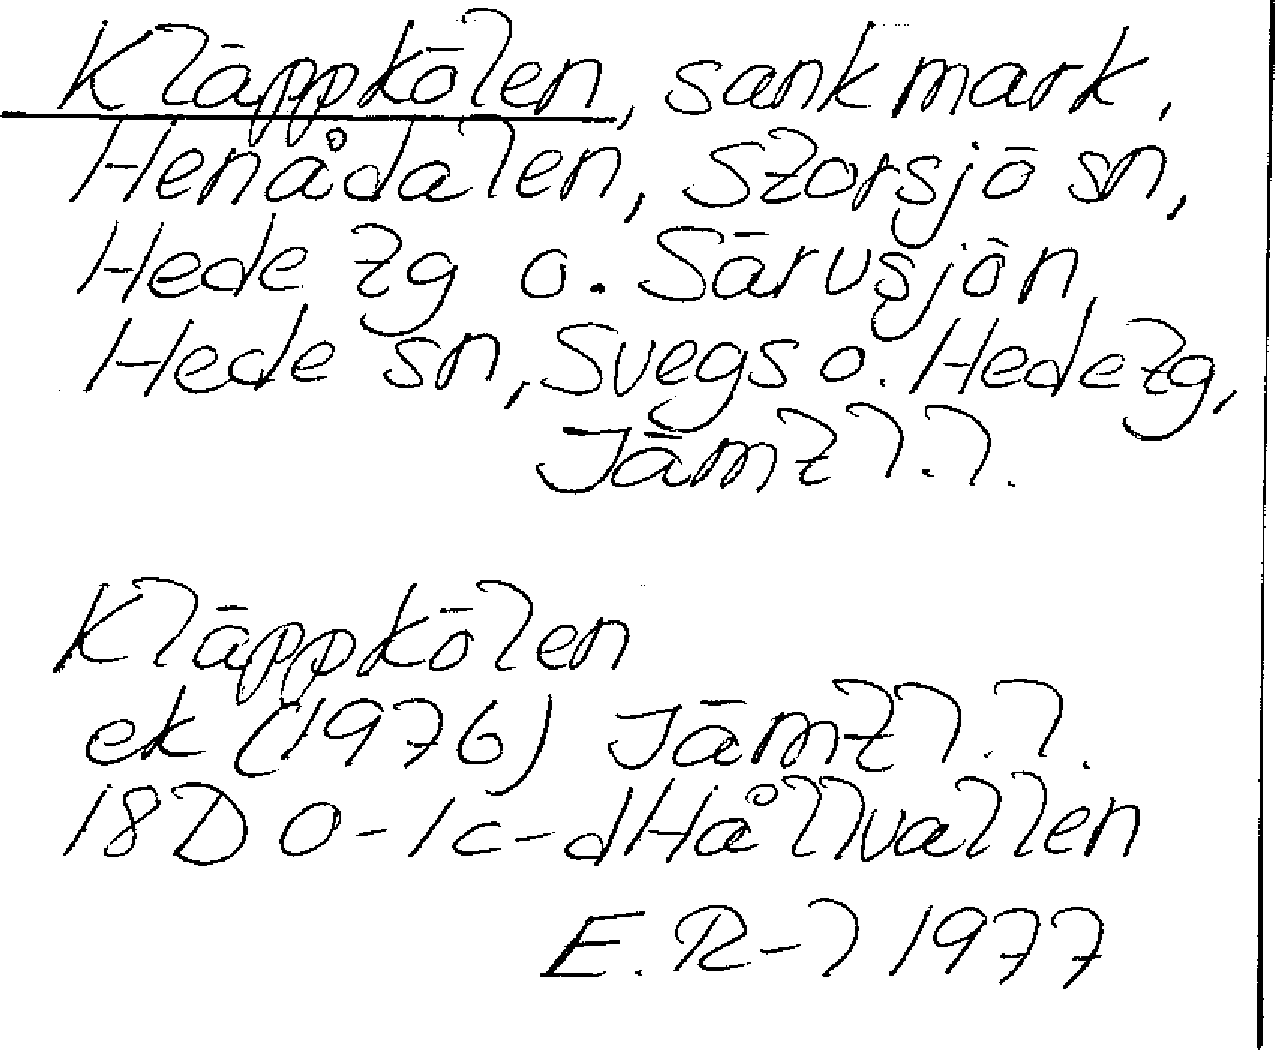 Kläppkölen, sankmark,
Henådalen, Storsjö sn,
Hede tg o. Särvsjön,
Hede sn, Svegs o. Hede tg,
Jämtl.l.
Kläppkölen
ek (1976) Jämtl.l.
18D 0-1c-d Hållvallen
E. R-l 1977